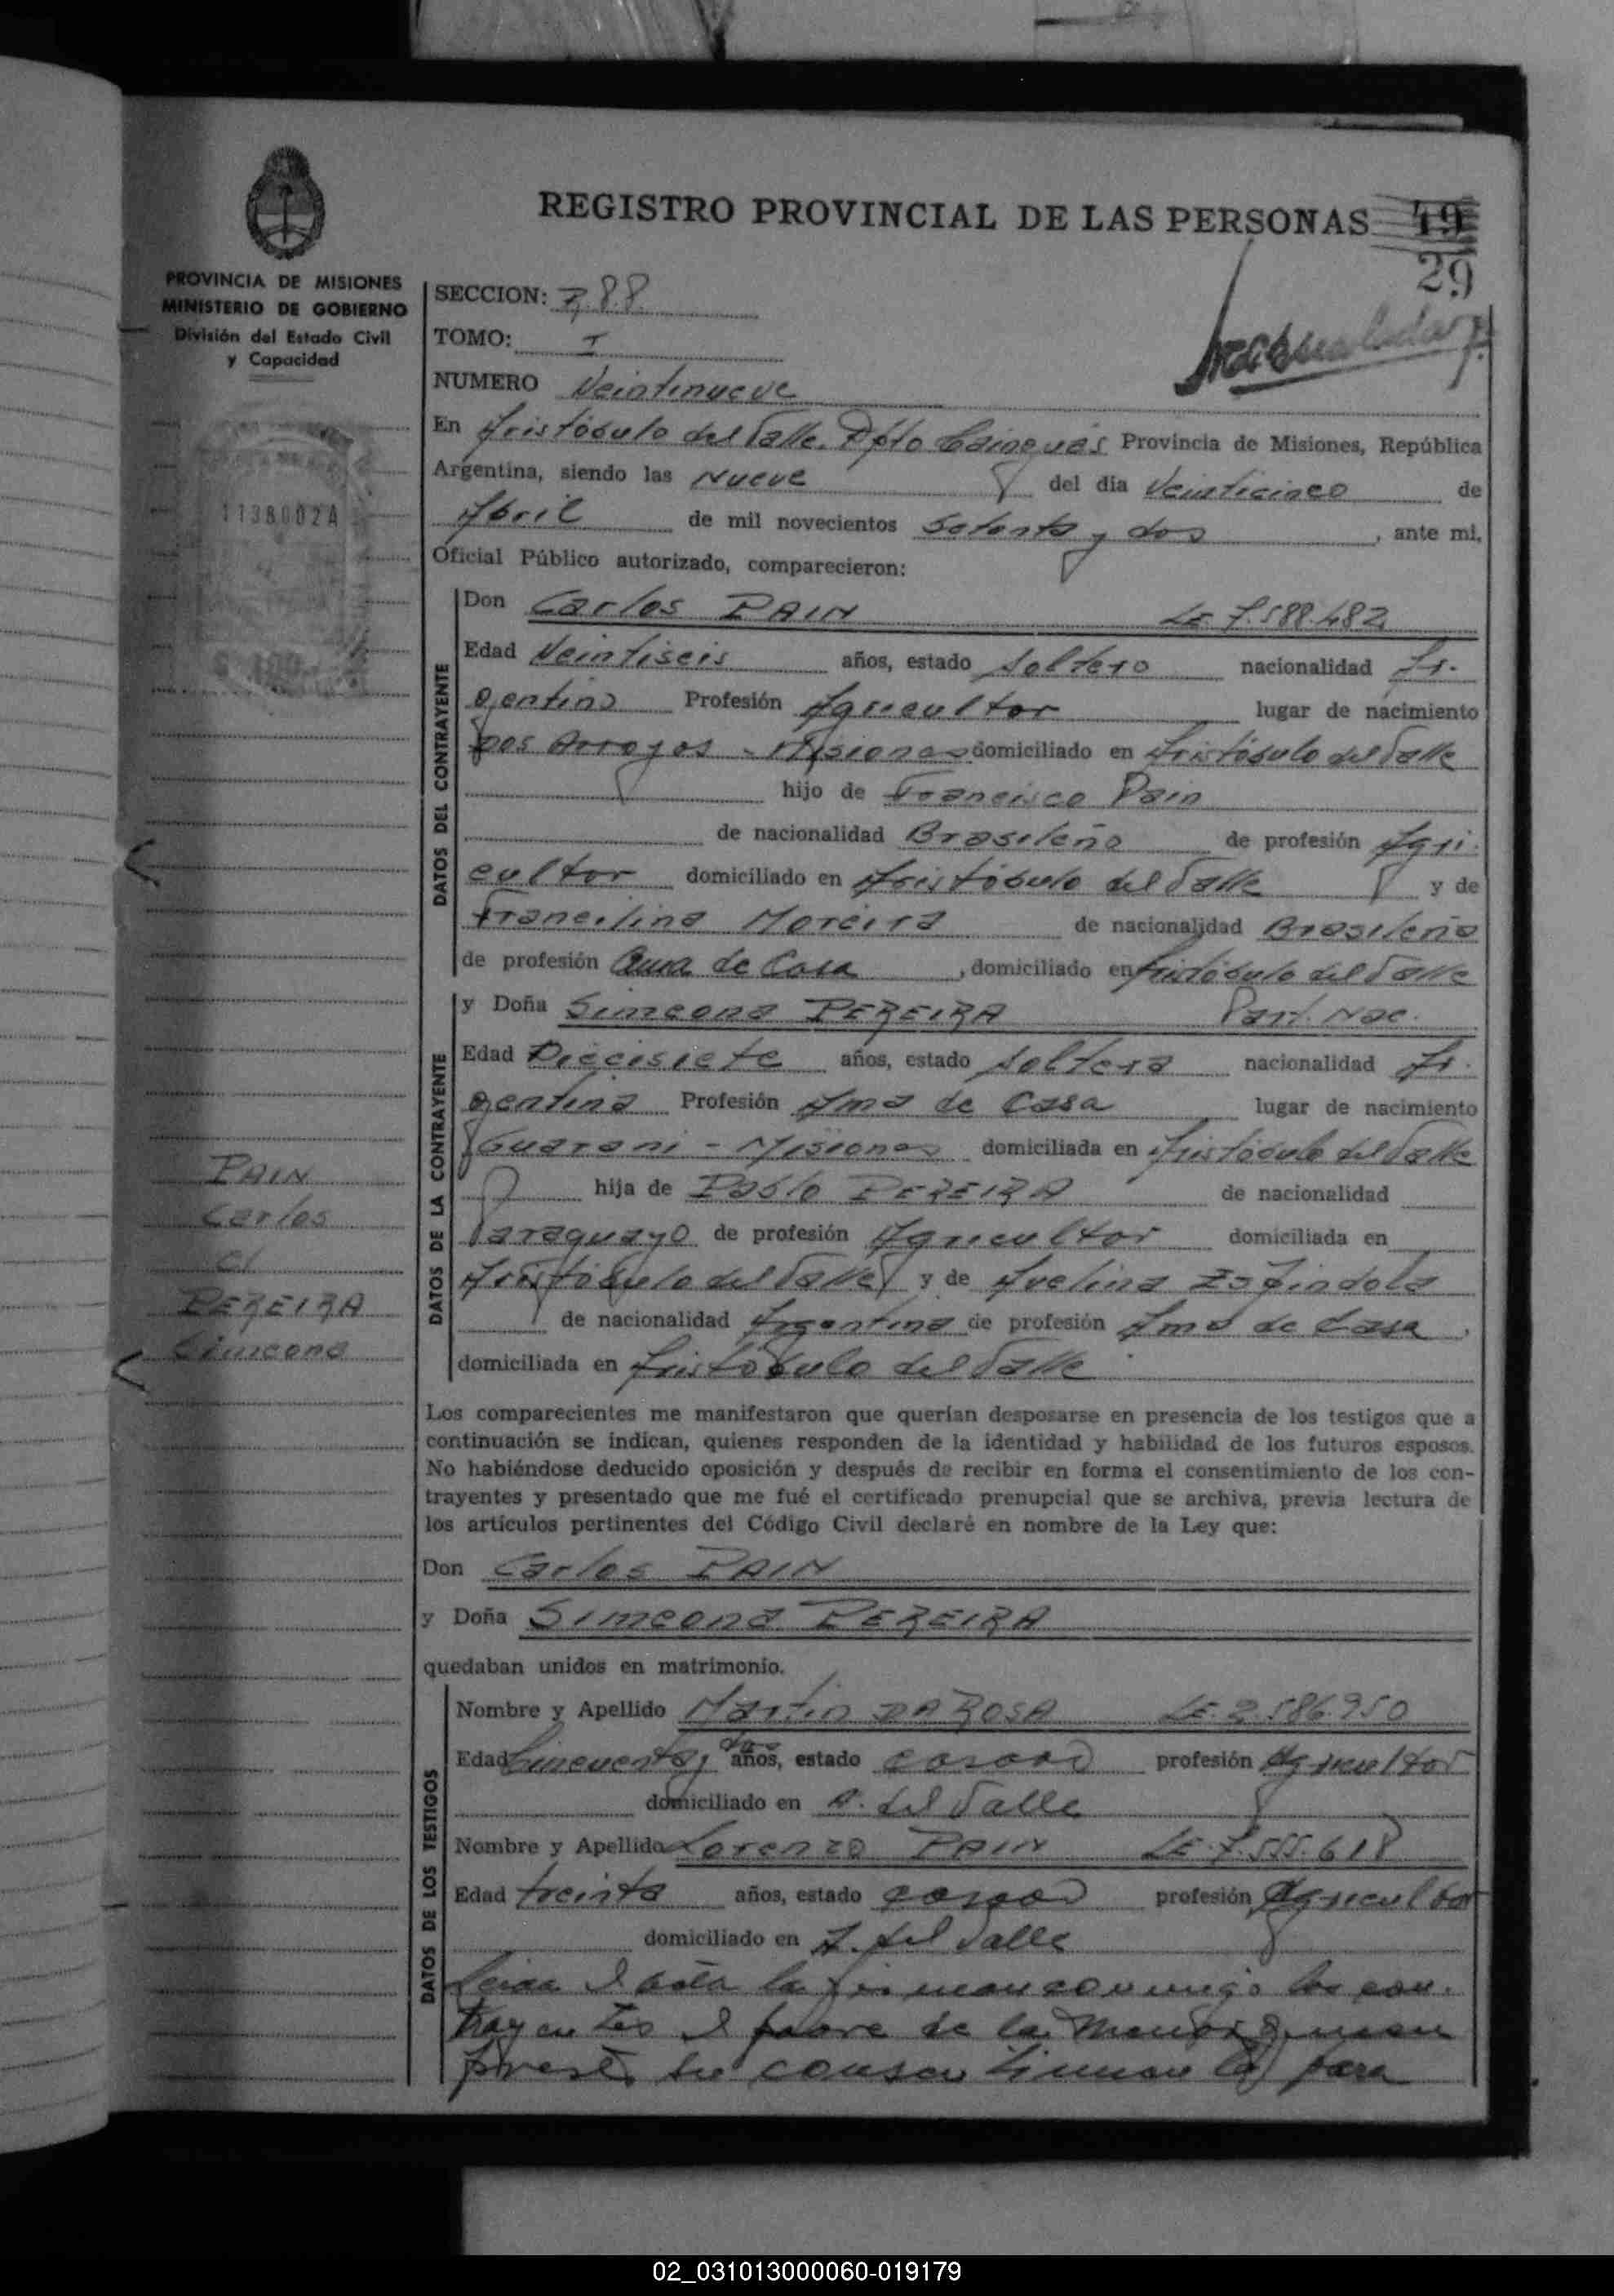 REGISTRO PROVINCIAL DE LAS PERSONAS 49
29
PROVINCIA DE MISIONES
MINISTERIO DE GOBIERNO
División del Estado Civil
y Capacidad
1138002A
SECCION: 788
TOMO: I
NUMERO Veintinueve
En Aristóbulo del Valle. Dpto Cainguás Provincia de Misiones, República
Argentina, siendo las Nueve del dia Veinticinco de
Abril de mil novecientos Setenta y dos, ante mi,
Oficial Público autorizado, comparecieron:
DATOS DEL CONTRAYENTE
Don Carlos PAIN LE 7.588.482
Edad Veintiseis años, estado soltero nacionalidad Ar-
gentino Profesión Agricultor lugar de nacimiento
Dos Arroyos - Misiones domiciliado en Aristóbulo del Valle
hijo de Francisco Pain
de nacionalidad Brasileño de profesión Agri-
cultor domiciliado en Aristóbulo del Valle y de
Francilina Moreira de nacionalidad Brasileña
de profesión Ama de Casa, domiciliado en Aristóbulo del Valle
DATOS DE LA CONTRAYENTE
y Doña Simeona PEREIRA Part. Nac.
Edad Diecisiete años, estado soltera nacionalidad Ar-
gentina Profesión Ama de Casa lugar de nacimiento
Guarani - Misiones domiciliada en Aristóbulo del Valle
hija de Pablo PEREIRA de nacionalidad
Paraguayo de profesión Agricultor domiciliada en
Aristóbulo del Valle y de Avelina Espindola
de nacionalidad Argentina de profesión Ama de Casa,
domiciliada en Aristóbulo del Valle
PAIN
Carlos
c/
PEREIRA
Simeona
Los comparecientes me manifestaron que querían desposarse en presencia de los testigos que a
continuación se indican, quienes responden de la identidad y habilidad de los futuros esposos.
No habiéndose deducido oposición y después de recibir en forma el consentimiento de los con-
trayentes y presentado que me fué el certificado prenupcial que se archiva, previa lectura de
los artículos pertinentes del Código Civil declaré en nombre de la Ley que:
Don Carlos PAIN
y Doña Simeona PEREIRA
quedaban unidos en matrimonio.
DATOS DE LOS TESTIGOS
Nombre y Apellido Martin DA ROSA LE. 2.586.950
Edad Cincuenta y dos años, estado casado profesión Agricultor
domiciliado en A. del Valle
Nombre y Apellido Lorenzo PAIN LE. 7.555.618
Edad treinta años, estado casado profesión Agricultor
domiciliado en A. del Valle
Leida el acta la firman conmigo los con-
trayentes el padre de la menor quien
presta su consentimiento para
02_031013000060-019179